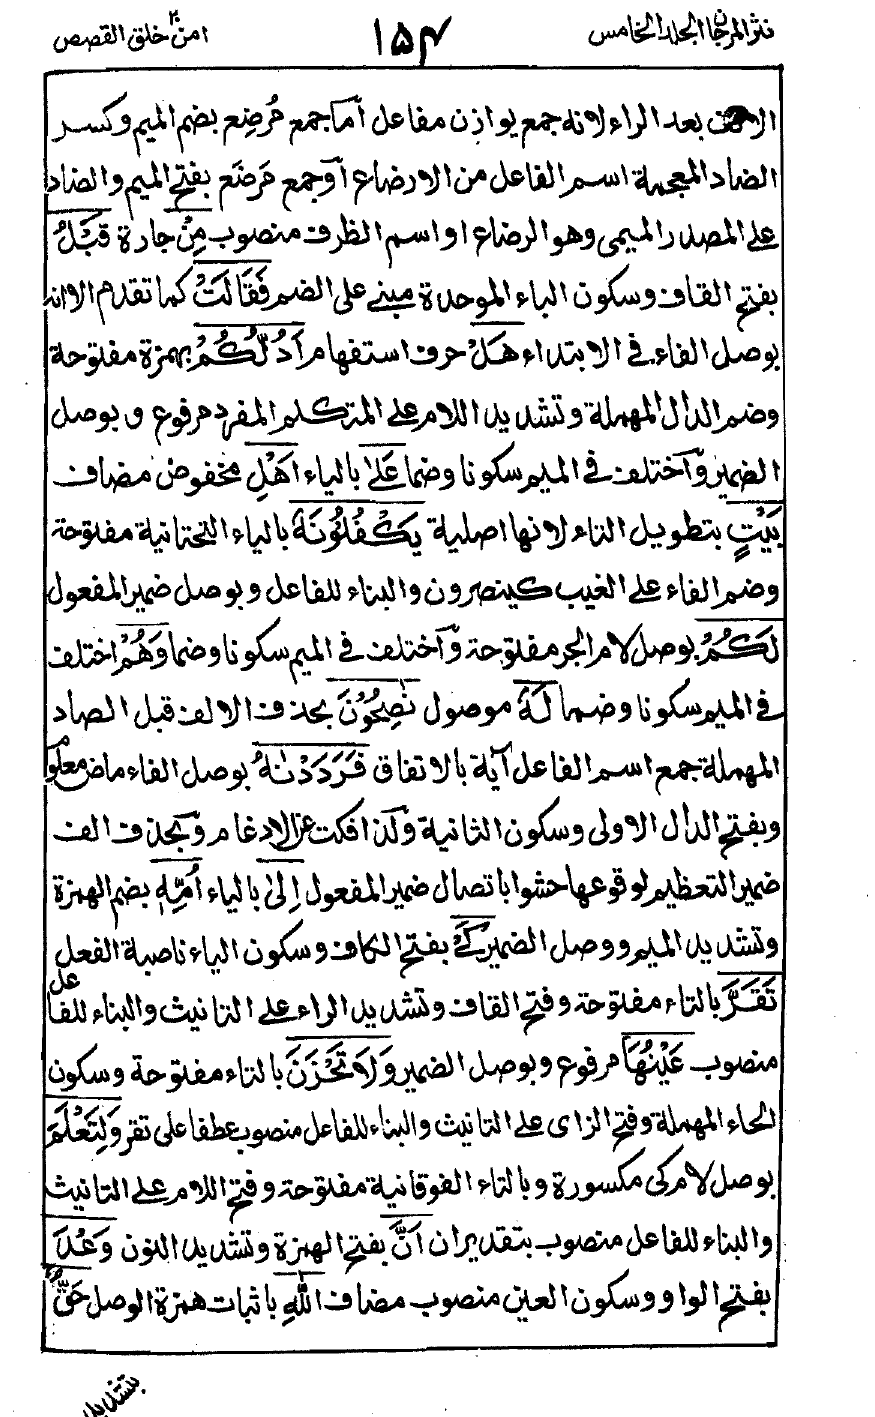 نثر المرجان الجلد الخامس
١٥٤
امن خلق ٢٠ القصص
بعد الراء لانه جمع يوازن مفاعل أما جمع مُرضِع بضم الميم وكسر
الضاد المعجمة اسم الفاعل من الارضاع أو جمع مَرضَع بفتح الميم والضاد
على المصدر الميمى وهو الرضاع او اسم الظرف منصوب مِنْ جارة قَبْلُ
بفتح القاف وسكون الباء الموحدة مبنى على الضم فَقَالَتْ كما تقدم الا انه
بوصل الفاء فى الابتداء هَلْ حرف استفهام اَدُلُّكُمْ بهمزة مفتوحة
وضم الدال المهملة وتشديد اللام على المتكلم المفرد مرفوع وبوصل
الضمير وآختلف فى الميم سكونا وضما عَلىٰ بالياء اَهْلِ مخفوض مضاف
بَيْتٍ بتطويل التاء لانها اصلية يَكْفُلُوْنَهٗ بالياء التحتانية مفتوحة
وضم الفاء على الغيب كينصرون والبناء للفاعل وبوصل ضمير المفعول
لَكُمْ بوصل لام الجر مفتوحة وآختلف فى الميم سكونا وضما وَهُمْ اختلف
فى الميم سكونا وضما لَهٗ موصول نٰصِحُوْنَ بحذف الالف قبل الصاد
المهملة جمع اسم الفاعل آية بالاتفاق فَرَدَدْنٰهُ بوصل الفاء ماض معلوم
وبفتح الدال الاولى وسكون الثانية ولذا فكت عن الادغام وبحذف الف
ضمير التعظيم لوقوعها حشوا باتصال ضمير المفعول اِلىٰ بالياء اُمِّهٖ بضم الهمزة
وتشديد الميم ووصل الضمير كَيْ بفتح الكاف وسكون الياء ناصبة الفعل
تَقَرَّ بالتاء مفتوحة وفتح القاف وتشديد الراء على التانيث والبناء للفاعل
منصوب عَيْنُهَا مرفوع وبوصل الضمير وَلَا تَحْزَنَ بالتاء مفتوحة وسكون
الحاء المهملة وفتح الزاى على التانيث والبناء للفاعل منصوب عطفا على تقر وَلِتَعْلَمَ
بوصل لام كى مكسورة وبالتاء الفوقانية مفتوحة وفتح اللام على التانيث
والبناء للفاعل منصوب بتقدير ان اَنَّ بفتح الهمزة وتشديد النون وَعْدَ
بفتح الواو وسكون العين منصوب مضاف اللّٰهِ باثبات همزة الوصل حَقٌّ
بتشديد